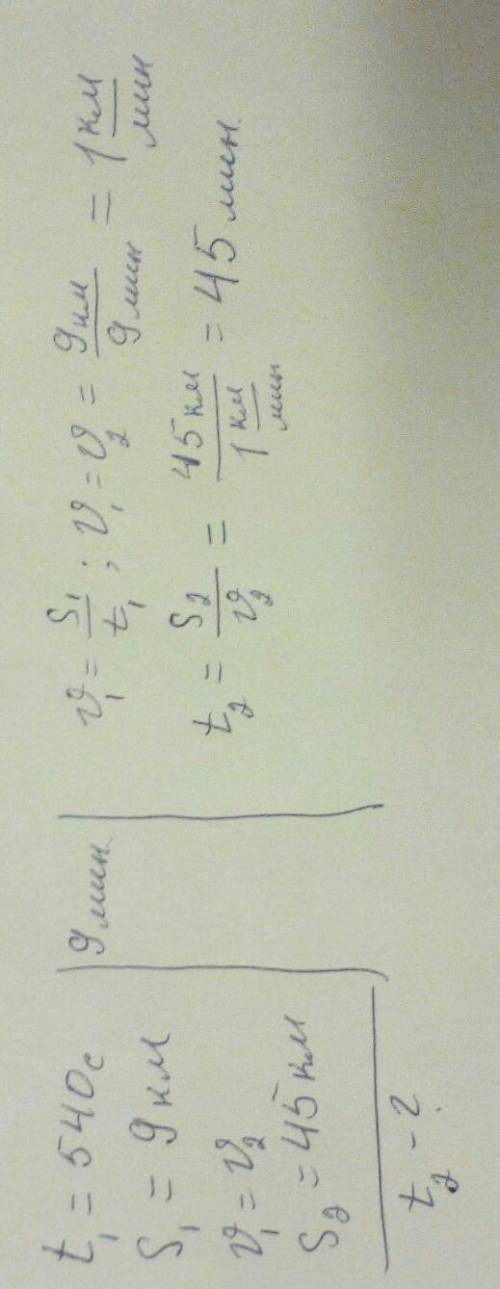 t₁ = 540с
S₁ = 9 км
v₁ = v₂
S₂ = 45 км
t₂ - ?
9 мин
v₁ = S₁/t₁ ; v₁ = v₂ = 9 км/9 мин = 1 км/мин
t₂ = S₂/v₂ = 45 км/1 км/мин = 45 мин